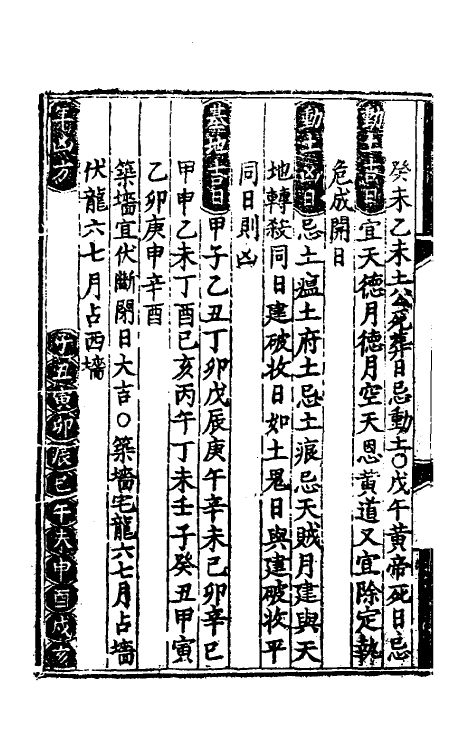 癸未乙未土公死葬日忌動土○戊午黃帝死日忌
動土吉日 宜天德月德月空天恩黃道又宜除定執
危成開日
動土凶日 忌土瘟土府土忌土痕忌天賊月建與天
地轉殺同日建破收日如土鬼日與建破收平
同日則凶
墓地吉日 甲子乙丑丁卯戊辰庚午辛未己卯辛巳
甲申乙未丁酉己亥丙午丁未壬子癸丑甲寅
乙卯庚申辛酉
築墻宜伏斷閉日大吉○築墻宅龍六七月占墻
伏龍六七月占西墻
年凶方 子丑寅卯辰巳午未申酉戌亥